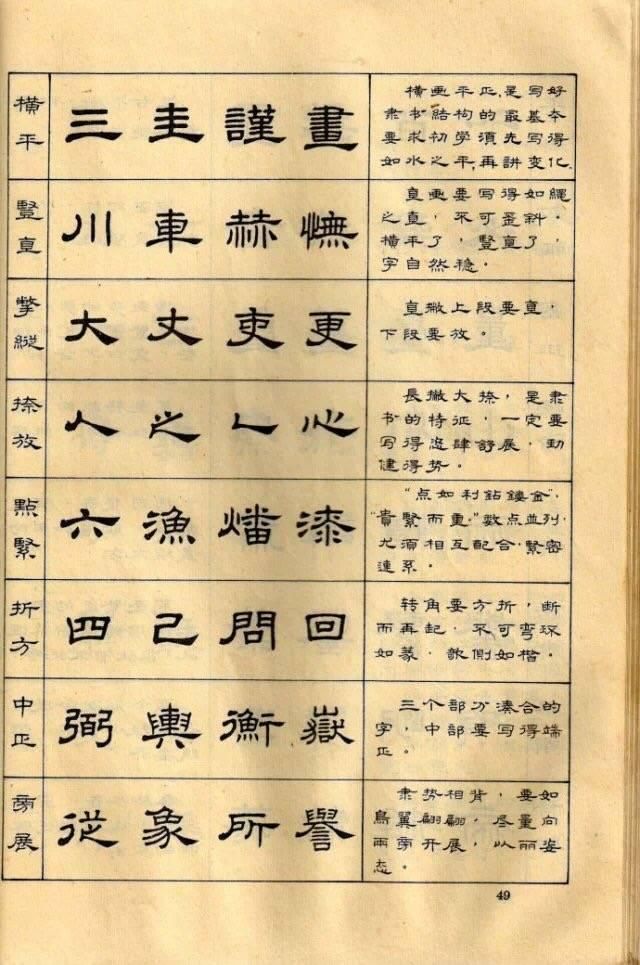 橫平
三 圭 謹 畫
横画平正，是写好
隶书结构的最基本
要求，初学须先写得
如水之平，再讲变化。
豎直
川 車 赫 憮
直画要写得如繩
之直，不可歪斜。
横平了，豎直了，
字自然稳。
撇縱
大 丈 吏 更
直撇上段要直，
下段要放。
捺放
人 之 乀 心
長撇大捺，是隶
书的特征，一定要
写得恣肆舒展，劲
健得势。
點緊
六 漁 燔 漆
“点如利鉆鏤金”，
“貴緊而重。”数点並列，
尤须相互配合，緊密
連系。
折方
四 己 問 回
转角要方折，断
而再起，不可弯环
如篆，欹侧如楷。
中正
弼 輿 衡 嶽
三个部分凑合的
字，中部要写得端
正。
旁展
從 象 所 譽
隶势相背，要如
鳥翼翩翩，尽量向
两旁开展，以丽姿
态。
49